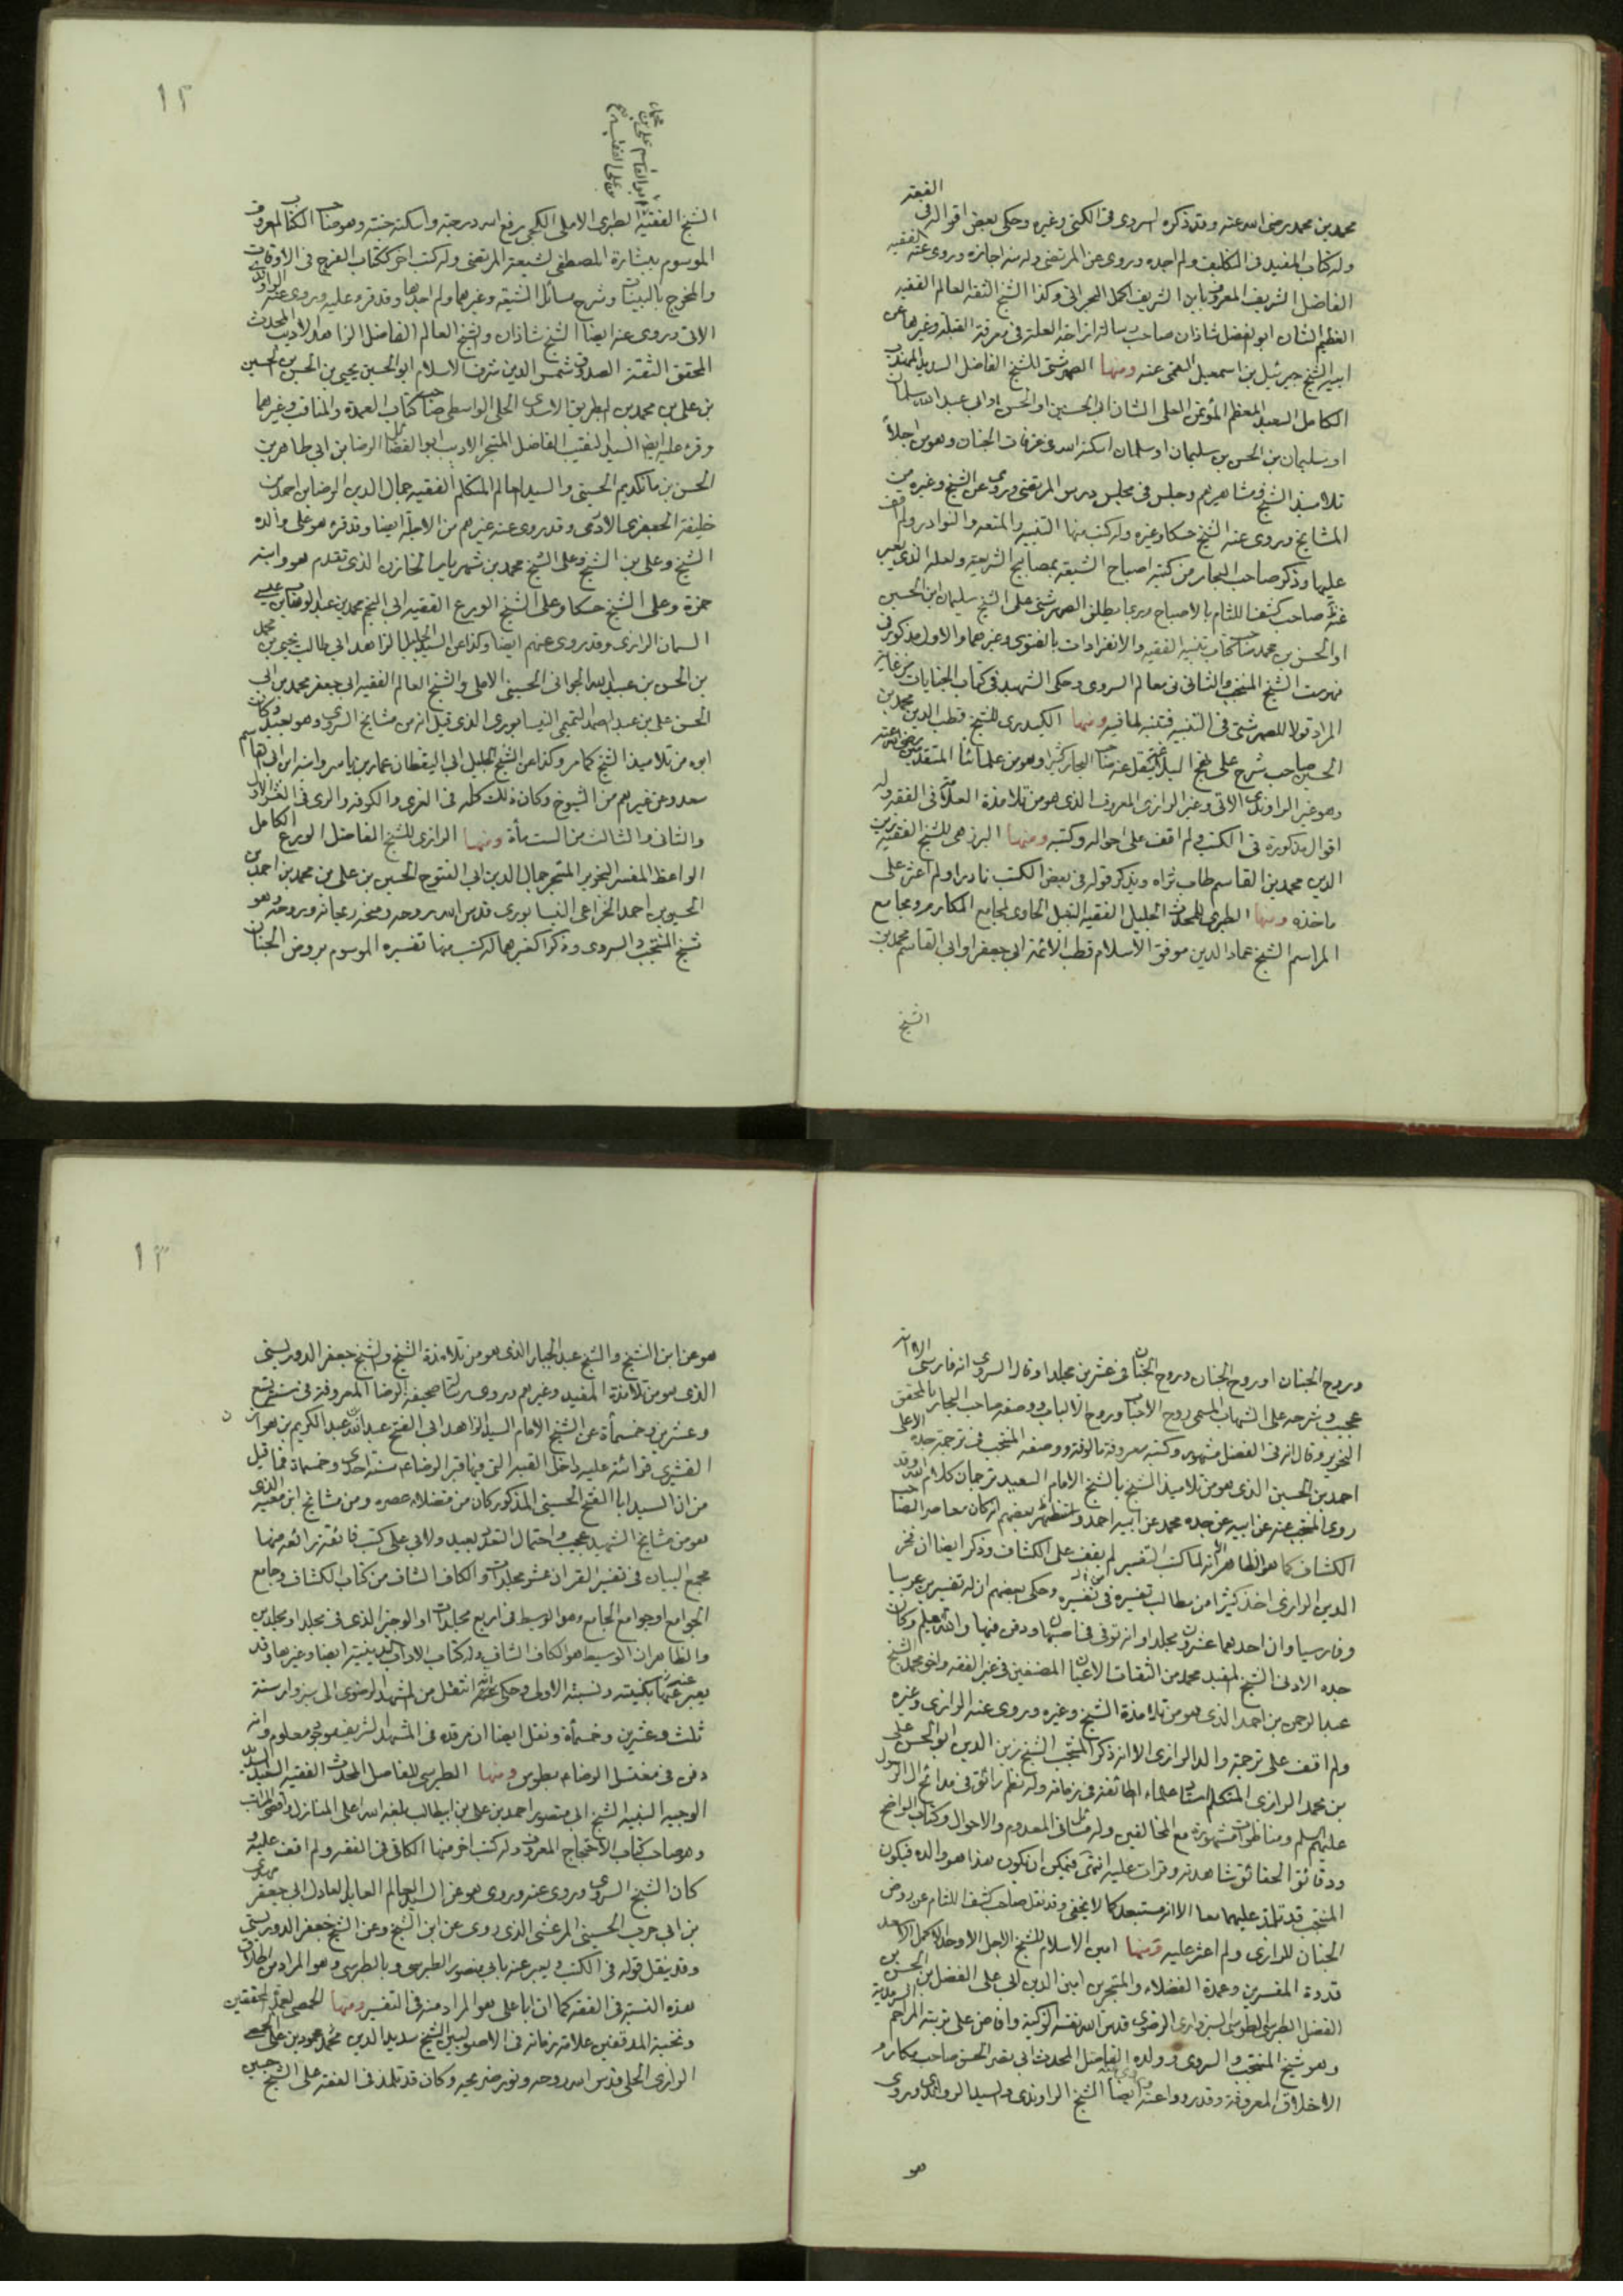 الفقه
محمد بن محمد رضى الله عنه وقد ذكره السروى فى الكنى وغيره وحكى بعض اقواله فى
وله كتاب المفيد فى التكليف ولم اجده ويروى عن المرتضى وله منه اجازه وروى عنه الفقيه
الفاضل الشريف المعروف بابن الشريف اكمل البحرانى وكذا الشيخ الثقة العالم الفقيه
العظيم الشان ابو الفضل شاذان صاحب رسالة ازاحة العلة فى معرفة القبلة وغيرها عن
ابيه الشيخ جبرئيل بن اسمعيل القمى عنه ومنها الصهرشتى للشيخ الفاضل السديد المهذب
الكامل السعيد المعظم المؤتمن العلى الشان ابى الحسين او الحسن او ابى عبد الله سلمان
او سليمان بن الحسن بن سليمان او سلمان اسكنه الله فى غرفات الجنان وهو من اجلاء
تلاميذ الشيخ ومشاهيرهم وجلس فى مجلس درس المرتضى وروى عن الشيخ وغيره من
المشايخ ويروى عنه الشيخ حسكا وغيره وله كتب منها التنبيه والمتعه والنوادر ولم اقف
عليها وذكر صاحب البحار من كتبه اصباح الشيعة بمصابيح الشريعة ولعله الذى يعبر
عنه صاحب كشف اللثام بالاصباح وربما يطلق الصهرشتى على الشيخ سليمان ابن الحسين
او الحسن بن محمد صاحب كتاب تنبيه الفقيه والانفرادات بالفتوى وغيرهما والاول مذكور فى
فهرست الشيخ المنتجب والثانى فى معالم السروى وحكى الشهيد فى كتاب الجنايات من غاية
المراد قولا للصهرشتى فى التنبيه فتنبه لما فيه ومنها الكيدرى للشيخ قطب الدين محمد بن
الحسين صاحب شرح على نهج البلاغة ينقل عنه صاحب البحار كثيرا وهو من علمائنا المتقدمين رضى الله عنه
وهو غير الراوندى الاتى وغير الرازى المعروف الذى هو من تلامذة العلامة فى الفقه وله
اقوال مذكورة فى الكتب ولم اقف على احواله وكتبه ومنها البزهى للشيخ الفقيه زين
الدين محمد بن القاسم طاب ثراه ويذكر قوله فى بعض الكتب نادرا ولم اعثر على
ماخذه ومنها الطبرى للمحدث الجليل الفقيه النبيل الحاوى لمجامع المكارم ومجامع
المراسم الشيخ عماد الدين موفق الاسلام قطب الائمة ابى جعفر او ابى القاسم محمد بن
الشيخ
١٢
ابو القاسم على بن محمد
بن على الفقيه
الشيخ الفقيه الطبرى الاملى الكجى رفع الله درجته واسكنه جنته وهو صاحب الكتاب المعروف
الموسوم ببشارة المصطفى لشيعة المرتضى وله كتب اخر ككتاب الفرج فى الاوقات
والمخرج بالبينات وشرح مسائل الذريعة وغيرهما ولم اجدها وقد قرء عليه وروى عنه الراوندى
الاتى وروى عنه ايضا الشيخ شاذان والشيخ العالم الفاضل الزاهد الاديب المحدث
المحقق الثقة الصدوق شمس الدين شرف الاسلام ابو الحسين يحيى بن الحسن بن الحسين
بن على بن محمد بن البطريق الاسدى الحلى الواسطى صاحب كتاب العمدة والمناقب وغيرهما
وقرء عليه ايضا السيد النقيب الفاضل المتبحر الاديب ابو الفضائل الرضا بن ابى طاهر بن
الحسن بن مانكديم الحسينى والسيد العالم المتكلم الفقيه جمال الدين الرضا بن احمد بن
خليفة الجعفرى الادمى وقد روى عنه غيرهم من الاجلة ايضا وقد قرء هو على والده
الشيخ وعلى بن الشيخ وعلى الشيخ محمد بن شهريار الخازن الذى تقدم هو وابنه
حمزة وعلى الشيخ حسكا وعلى الشيخ الورع الفقيه ابى النجم محمد بن عبد الوهاب بن عيسى
السمان الرازى وقد روى عنهم ايضا وكذا عن السيد الجليل الزاهد ابى طالب يحيى بن محمد
بن الحسن بن عبد الله الجوانى الحسينى الاملى والشيخ العالم الفقيه ابى جعفر محمد بن ابى
الحسن على بن عبد الصمد التميمى النيسابورى الذى قيل انه من مشايخ السروى وهو بعيد وكان
ابوه من تلاميذ الشيخ كما مر وكذا عن الشيخ الجليل ابى اليقظان عمار بن ياسر وابنه ابى القاسم
سعد وعن غيرهم من الشيوخ وكان ذلك كله فى الغرى والكوفة والرى فى العشر الاول
والثانى والثالث من الست مأة ومنها الرازى للشيخ الفاضل الورع الكامل
الواعظ المفسر النحرير المتبحر جمال الدين ابى الفتوح الحسين بن على بن محمد بن احمد بن
الحسين بن احمد الخزاعى النيسابورى قدس الله روحه ومنحه ريحانه وروحه وهو
شيخ المنتجب والسروى وذكرا كغيرهما له كتب منها تفسيره الموسوم بروض الجنان
وروح الجنان او روح الجنان وروح الجنان فى عشرين مجلدا وقال السروى انه فارسى الا انه
عجيب وشرحه على الشهاب المسمى روح الاحباب وروح الالباب ووصفه صاحب البحار بالمحقق
النحرير وقال انه فى الفضل مشهور وكتبه معروفة مالوفة ووصفه المنتجب فى ترجمة جده الاعلى
احمد بن الحسين الذى هو من تلاميذ الشيخ بالشيخ الامام السعيد ترجمان كلام الله وقد
روى المنتجب عنه عن ابيه عن جده محمد عن ابيه احمد واستظهر بعضهم انه كان معاصر الصاحب
الكشاف كما هو الظاهر الا انه لما كتب التفسير لم يقف على الكشاف وذكر ايضا ان فخر
الدين الرازى اخذ كثيرا من مطالب تفسيره فى تفسيره وحكى بعضهم ان له تفسيرين عربيا
وفارسيا وان احدهما عشرون مجلدا وانه توفى فى اصبهان ودفن فيها والله يعلم وكان
جده الادنى الشيخ المفيد محمد من الثقات الاعيان المصنفين فى غير الفقه واخو محمد الشيخ
عبد الرحمن بن احمد الذى هو من تلامذة الشيخ وغيره ويروى عنه الرازى وغيره
ولم اقف على ترجمة والد الرازى الا انه ذكر المنتجب الشيخ زين الدين ابو الحسن على
بن محمد الرازى المتكلم استاد علماء الطائفة فى زمانه وله نظم رائق فى مدائح ال الرسول
عليهم السلم ومناظرات مشهورة مع المخالفين وله مسائل فى المعدوم والاحوال وكتاب الواضح
ودقائق الحقائق شاهدته وقرات عليه انتهى فيمكن ان يكون هذا هو والده فيكون
المنتجب قد تلمذ عليهما معا الا انه مستبعد كما لا يخفى وقد نقل صاحب كشف اللثام عن روض
الجنان للرازى ولم اعثر عليه ومنها امين الاسلام للشيخ الاجل الاوحد الاكمل الاسعد
قدوة المفسرين وعمدة الفضلاء والمتبحرين امين الدين ابى على الفضل بن الحسن بن
الفضل الطبرسى الطوسى السبزوارى الرضوى قدس الله نفسه الزكية وافاض على تربته المراحم السرمدية
وهو شيخ المنتجب والسروى وولده الفاضل المحدث ابى نصر الحسن صاحب مكارم
الاخلاق المعروفة وقد رووا عنه ايضا الشيخ الراوندى والسيد الراوندى ويروى
هو
١٣
هو عن ابن الشيخ والشيخ عبد الجبار الذى هو من تلامذة الشيخ والشيخ جعفر الدوريستى
الذى هو من تلامذة المفيد وغيرهم ويروى صحيفة الرضا المعروفة فى سنة تسع
وعشرين وخمسمأة عن الشيخ الامام السيد الزاهد ابى الفتح عبد الله عبد الكريم بن هوازن
القشيرى قرائة عليه داخل القبة التى فيها قبر الرضا سنة احدى وخمسمأة فما قيل
من ان السيد ابا الفتح الحسينى المذكور كان من فضلاء عصره ومن مشايخ ابن معية الذى
هو من مشايخ الشهيد عجيب واحتمال التعدد بعيد ولابى على كتب فائقة رائعة منها
مجمع البيان فى تفسير القران عشر مجلدات والكاف الشاف من كتاب الكشاف وجامع
الجوامع او جوامع الجامع وهو الوسيط فى اربع مجلدات او الوجيز الذى فى مجلد او مجلدين
والظاهر ان الوسيط هو الكاف الشاف وله كتاب الاداب الدينية ايضا وغيرها وقد
يعبر عنه بكنيته ونسبته الاولى وحكى عنه انه انتقل من المشهد الرضوى الى سبزوار سنة
ثلث وعشرين وخمسمأة ونقل ايضا ان مرقده فى المشهد الشريف موجود معلوم وانه
دفن فى مغتسل الرضا بطوس ومنها الطبرسى للفاضل المحدث الفقيه السعيد السديد
الوجيه النبيه الشيخ ابى منصور احمد بن على بن ابيطالب بلغه الله اعلى المنازل واقصى المراتب
وهو صاحب كتاب الاحتجاج المعروف وله كتب اخر منها الكافى فى الفقه ولم اقف عليه و
كان الشيخ السروى وروى عنه ويروى هو عن السيد العالم العابد العادل ابى جعفر مهدى
بن ابى حرب الحسينى المرعشى الذى روى عن ابن الشيخ وعن الشيخ جعفر الدوريستى
وقد ينقل قوله فى الكتب ويعبر عنه بابى منصور الطبرسى وبالطبرسى وهو المراد من اطلاق
هذه النسبة فى الفقه كما ان ابا على هو المراد منه فى التفسير ومنها الحمصى لعمدة المحققين
ونخبة المدققين علامة زمانه فى الاصولين الشيخ سديد الدين محمود بن على الحمصى
الرازى الحلى قدس الله روحه ونور ضريحه وكان قد تلمذ فى الفقه على الشيخ حسين